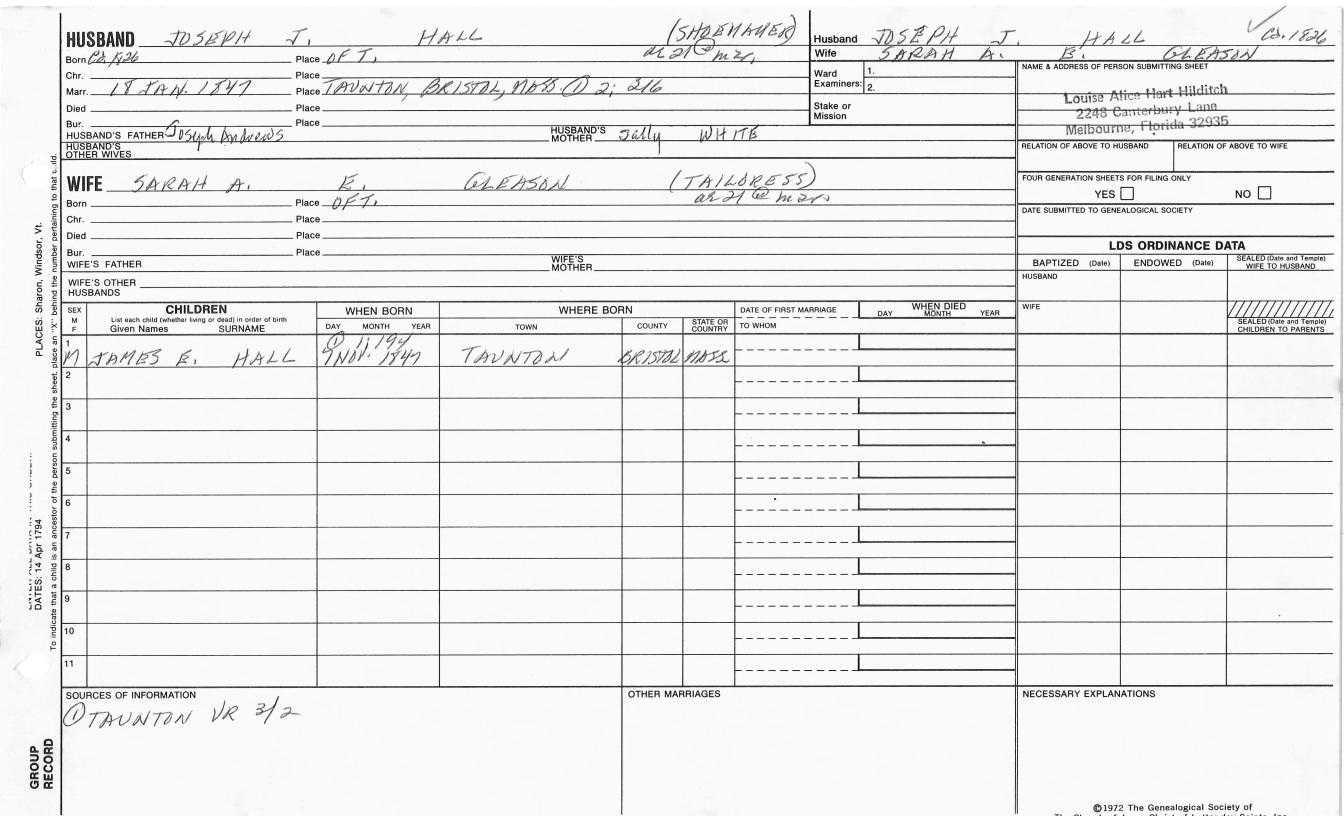 HUSBAND JOSEPH J. HALL (SHOEMAKER)
Born Ca. 1826 Place OF T. ae 21 @ mar.
Chr. Place
Marr. 18 JAN. 1847 Place TAUNTON, BRISTOL, MASS ① 2; 216
Died Place
Bur. Place
HUSBAND'S FATHER Joseph Andrews HUSBAND'S MOTHER Sally WHITE
HUSBAND'S OTHER WIVES
WIFE SARAH A. E. GLEASON (TAILORESS)
Born Place OF T. ae 21 @ mar.
Chr. Place
Died Place
Bur. Place
WIFE'S FATHER WIFE'S MOTHER
WIFE'S OTHER HUSBANDS
Husband JOSEPH J. HALL Ca. 1826
Wife SARAH A. E. GLEASON
Ward Examiners: 1.
2.
Stake or Mission
NAME & ADDRESS OF PERSON SUBMITTING SHEET
Louise Alice Hart Hilditch
2248 Canterbury Lane
Melbourne, Florida 32935
RELATION OF ABOVE TO HUSBAND RELATION OF ABOVE TO WIFE
FOUR GENERATION SHEETS FOR FILING ONLY
YES NO
DATE SUBMITTED TO GENEALOGICAL SOCIETY
LDS ORDINANCE DATA
BAPTIZED (Date) ENDOWED (Date) SEALED (Date and Temple) WIFE TO HUSBAND
HUSBAND
WIFE
SEALED (Date and Temple) CHILDREN TO PARENTS
SEX M F CHILDREN WHEN BORN WHERE BORN DATE OF FIRST MARRIAGE WHEN DIED
List each child (whether living or dead) in order of birth
Given Names SURNAME DAY MONTH YEAR TOWN COUNTY STATE OR COUNTRY TO WHOM DAY MONTH YEAR
① 1; 194
1 M JAMES E. HALL 9 NOV. 1847 TAUNTON BRISTOL MASS.
2
3
4
5
6
7
8
9
10
11
SOURCES OF INFORMATION OTHER MARRIAGES NECESSARY EXPLANATIONS
① TAUNTON VR 3/2
©1972 The Genealogical Society of
PLACES: Sharon, Windsor, Vt.
DATES: 14 Apr 1794
To indicate that a child is an ancestor of the person submitting the sheet, place an "X" behind the number pertaining to that child.
GROUP RECORD